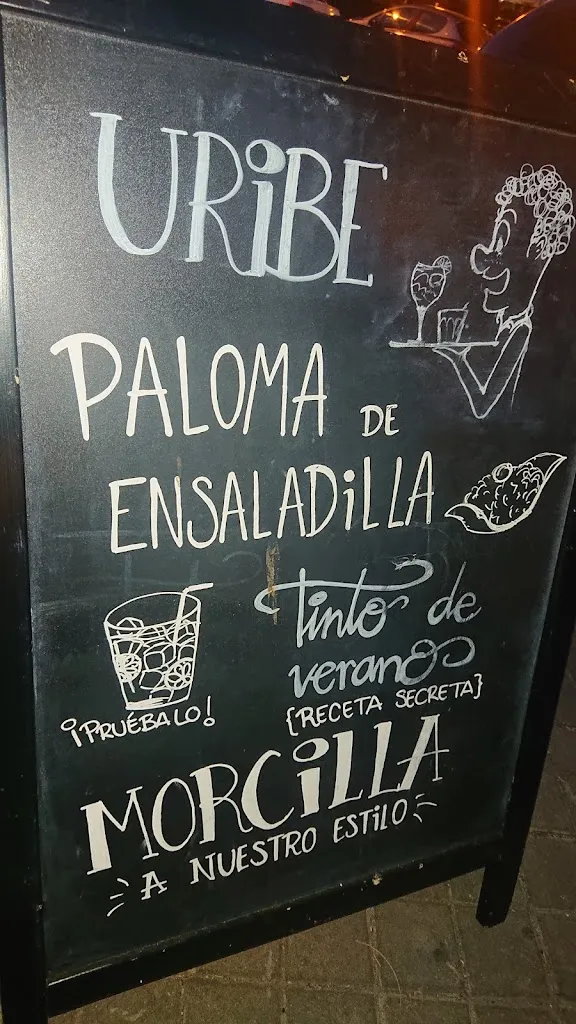 URiBE
PALOMA DE
ENSALADiLLA
Tinto de
verano
¡PRUÉBALO!
{RECETA SECRETA}
MORCiLLA
A NUESTRO ESTiLO